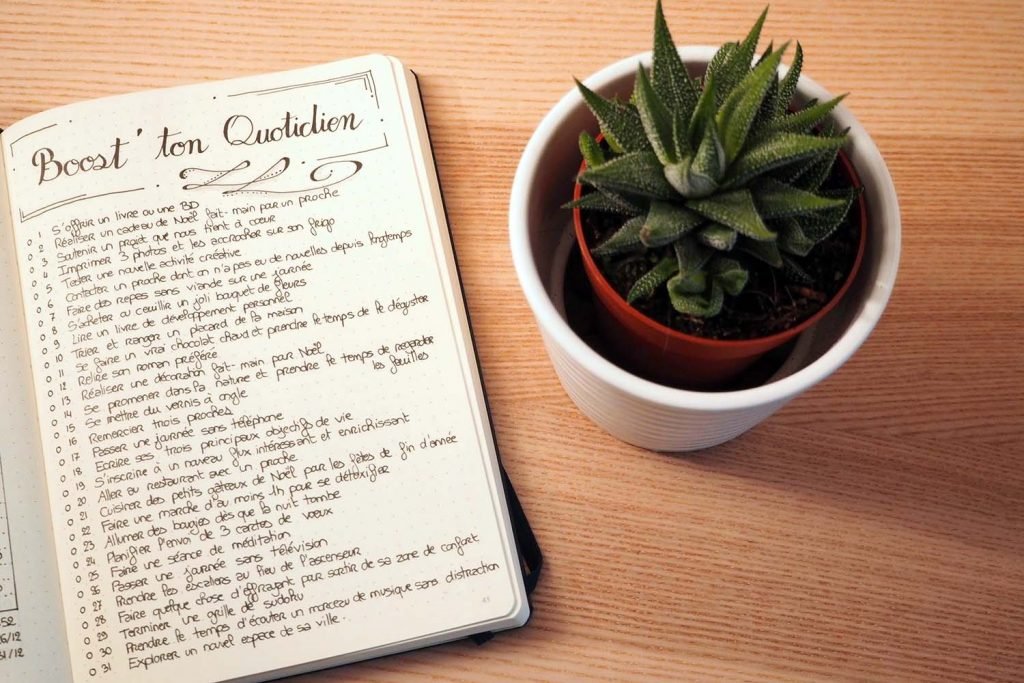 Boost' ton Quotidien
o 1 S'offrir un livre ou une BD
o 2 Réaliser un cadeau de Noël fait-main par un proche
o 3 Soutenir un projet que nous tient à coeur
o 4 Imprimer 3 photos et les accrocher sur son frigo
o 5 Tester une nouvelle activité créative
o 6 Contacter un proche dont on n'a pas eu de nouvelles depuis longtemps
o 7 Faire des repas sans viande sur une journée
o 8 S'acheter ou cueillir un joli bouquet de fleurs
o 9 Lire un livre de développement personnel
o 10 Trier et ranger un placard de la maison
o 11 Se faire un vrai chocolat chaud et prendre le temps de le déguster
o 12 Relire son roman préféré
o 13 Réaliser une décoration fait-main par Noël
o 14 Se promener dans la nature et prendre le temps de regarder
les feuilles
o 15 Se mettre du vernis à ongle
o 16 Remercier trois proches
o 17 Passer une journée sans téléphone
o 18 Ecrire ses trois principaux objectifs de vie
o 19 S'inscrire à un nouveau flux intéressant et enrichissant
o 20 Aller au restaurant avec un proche
o 21 Cuisiner des petits gâteaux de Noël pour les fêtes de fin d'année
o 22 Faire une marche d'au moins 1h pour se détoxifier
o 23 Allumer des bougies dès que la nuit tombe
o 24 Planifier l'envoi de 3 cartes de voeux
o 25 Faire une séance de méditation
o 26 Passer une journée sans télévision
o 27 Prendre les escaliers au lieu de l'ascenseur
o 28 Faire quelque chose d'effrayant par sortir de sa zone de confort
o 29 Terminer une grille de sudoku
o 30 Prendre le temps d'écouter un morceau de musique sans distraction
o 31 Explorer un nouvel espace de sa ville.